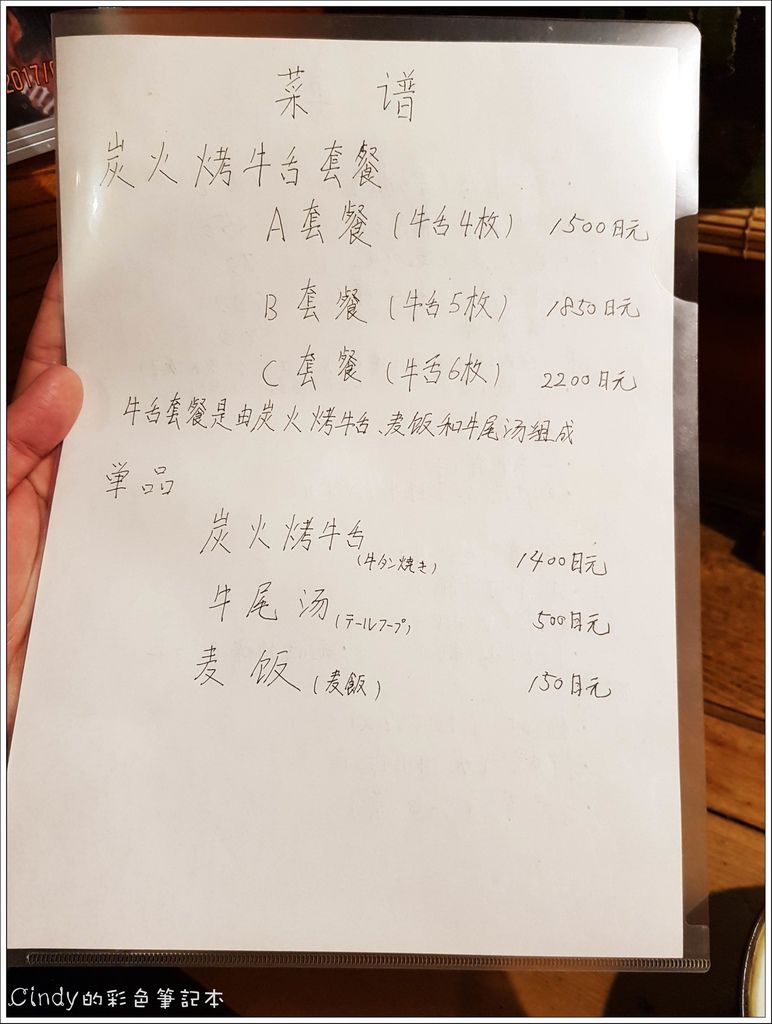 2017/
菜 谱
炭火烤牛舌套餐
A 套餐 (牛舌4枚) 1500日元
B 套餐 (牛舌5枚) 1850日元
C 套餐 (牛舌6枚) 2200日元
牛舌套餐是由炭火烤牛舌、麦饭和牛尾汤组成
单品
炭火烤牛舌 (牛タン焼き) 1400日元
牛尾汤 (テールスープ) 500日元
麦饭 (麦飯) 150日元
Cindy的彩色筆記本